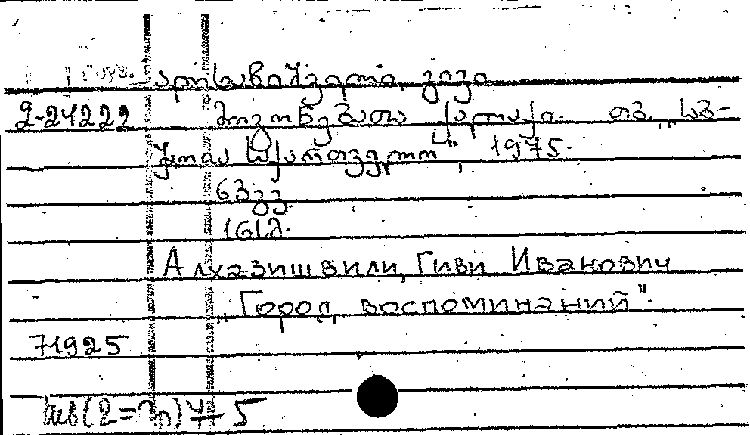 Груз. ალხაზიშვილი, გივი
2-24222 მოგონებათა ქალაქი. თბ., „საბ-
ჭოთა საქართველო", 1975.
63გვ.
161გ.
Алхазишвили, Гиви Иванович
„Город воспоминаний".
71925